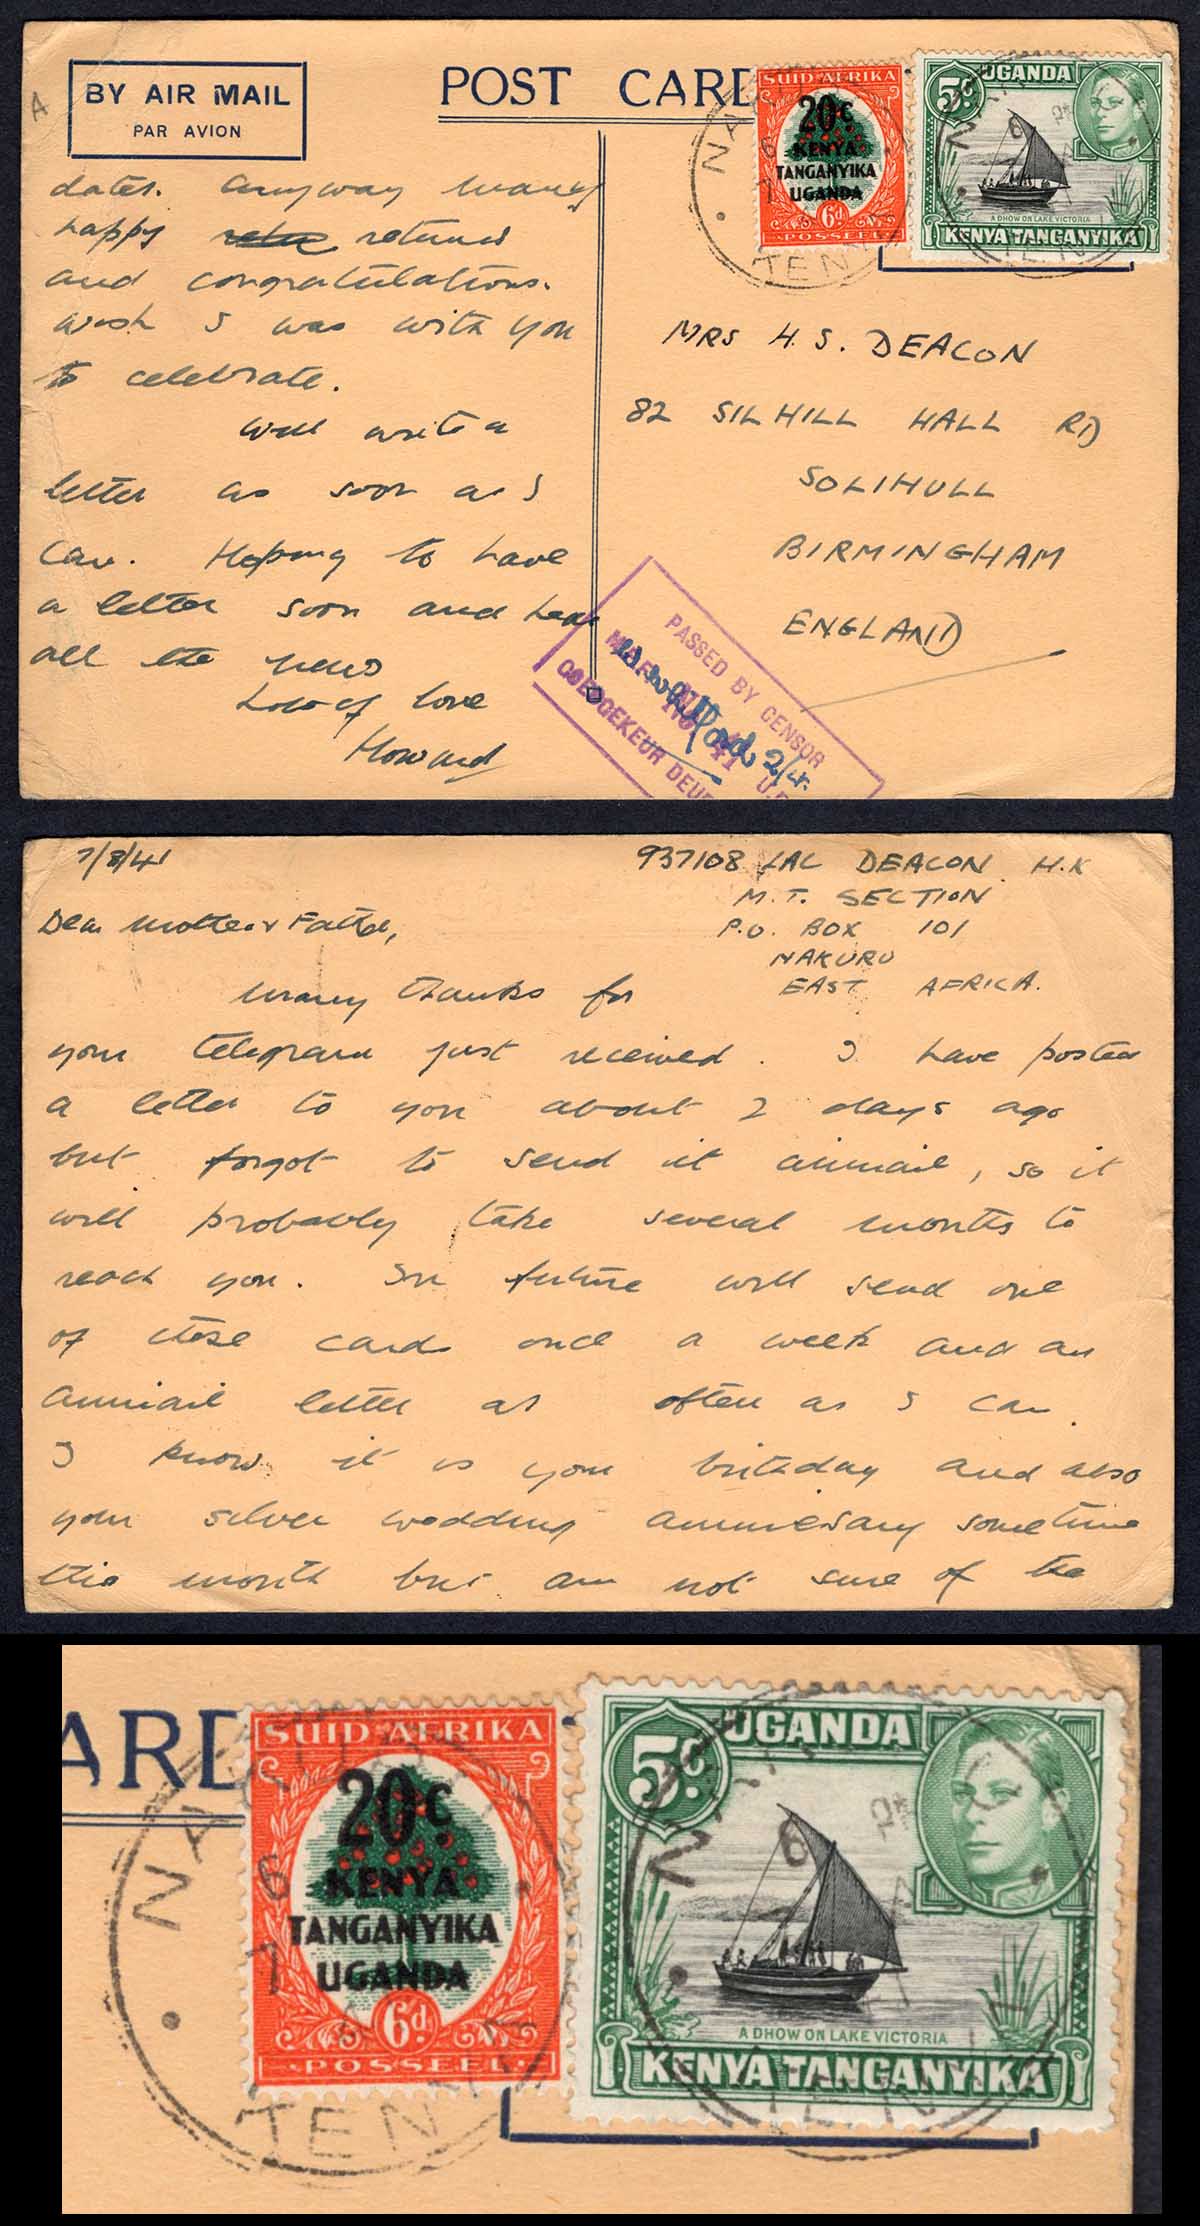 BY AIR MAIL
PAR AVION
POST CARD
SUID-AFRIKA
20c
KENYA
TANGANYIKA
UGANDA
6d
POSSEËL
5c
UGANDA
A DHOW ON LAKE VICTORIA
KENYA TANGANYIKA
dates. Anyway many
happy returns
and congratulations.
Wish I was with you
to celebrate.
Will write a
letter as soon as I
can. Hoping to have
a letter soon and hear
all the news
Lots of love
Howard
MRS H. S. DEACON
82 SILHILL HALL RD
SOLIHULL
BIRMINGHAM
ENGLAND
PASSED BY CENSOR
GOEDGEKEUR DEUR
7/8/41
937108 LAC DEACON H.K
M.T. SECTION
P.O. BOX 101
NAKURU
EAST AFRICA.
Dear Mother & Father,
Many thanks for
your telegram just received. I have posted
a letter to you about 2 days ago
but forgot to send it airmail, so it
will probably take several months to
reach you. In future will send one
of these cards once a week and an
airmail letter as often as I can.
I know it is your birthday and also
your silver wedding anniversary sometime
this month but am not sure of the
ARD
SUID-AFRIKA
20c
KENYA
TANGANYIKA
UGANDA
6d
POSSEËL
5c
UGANDA
A DHOW ON LAKE VICTORIA
KENYA TANGANYIKA